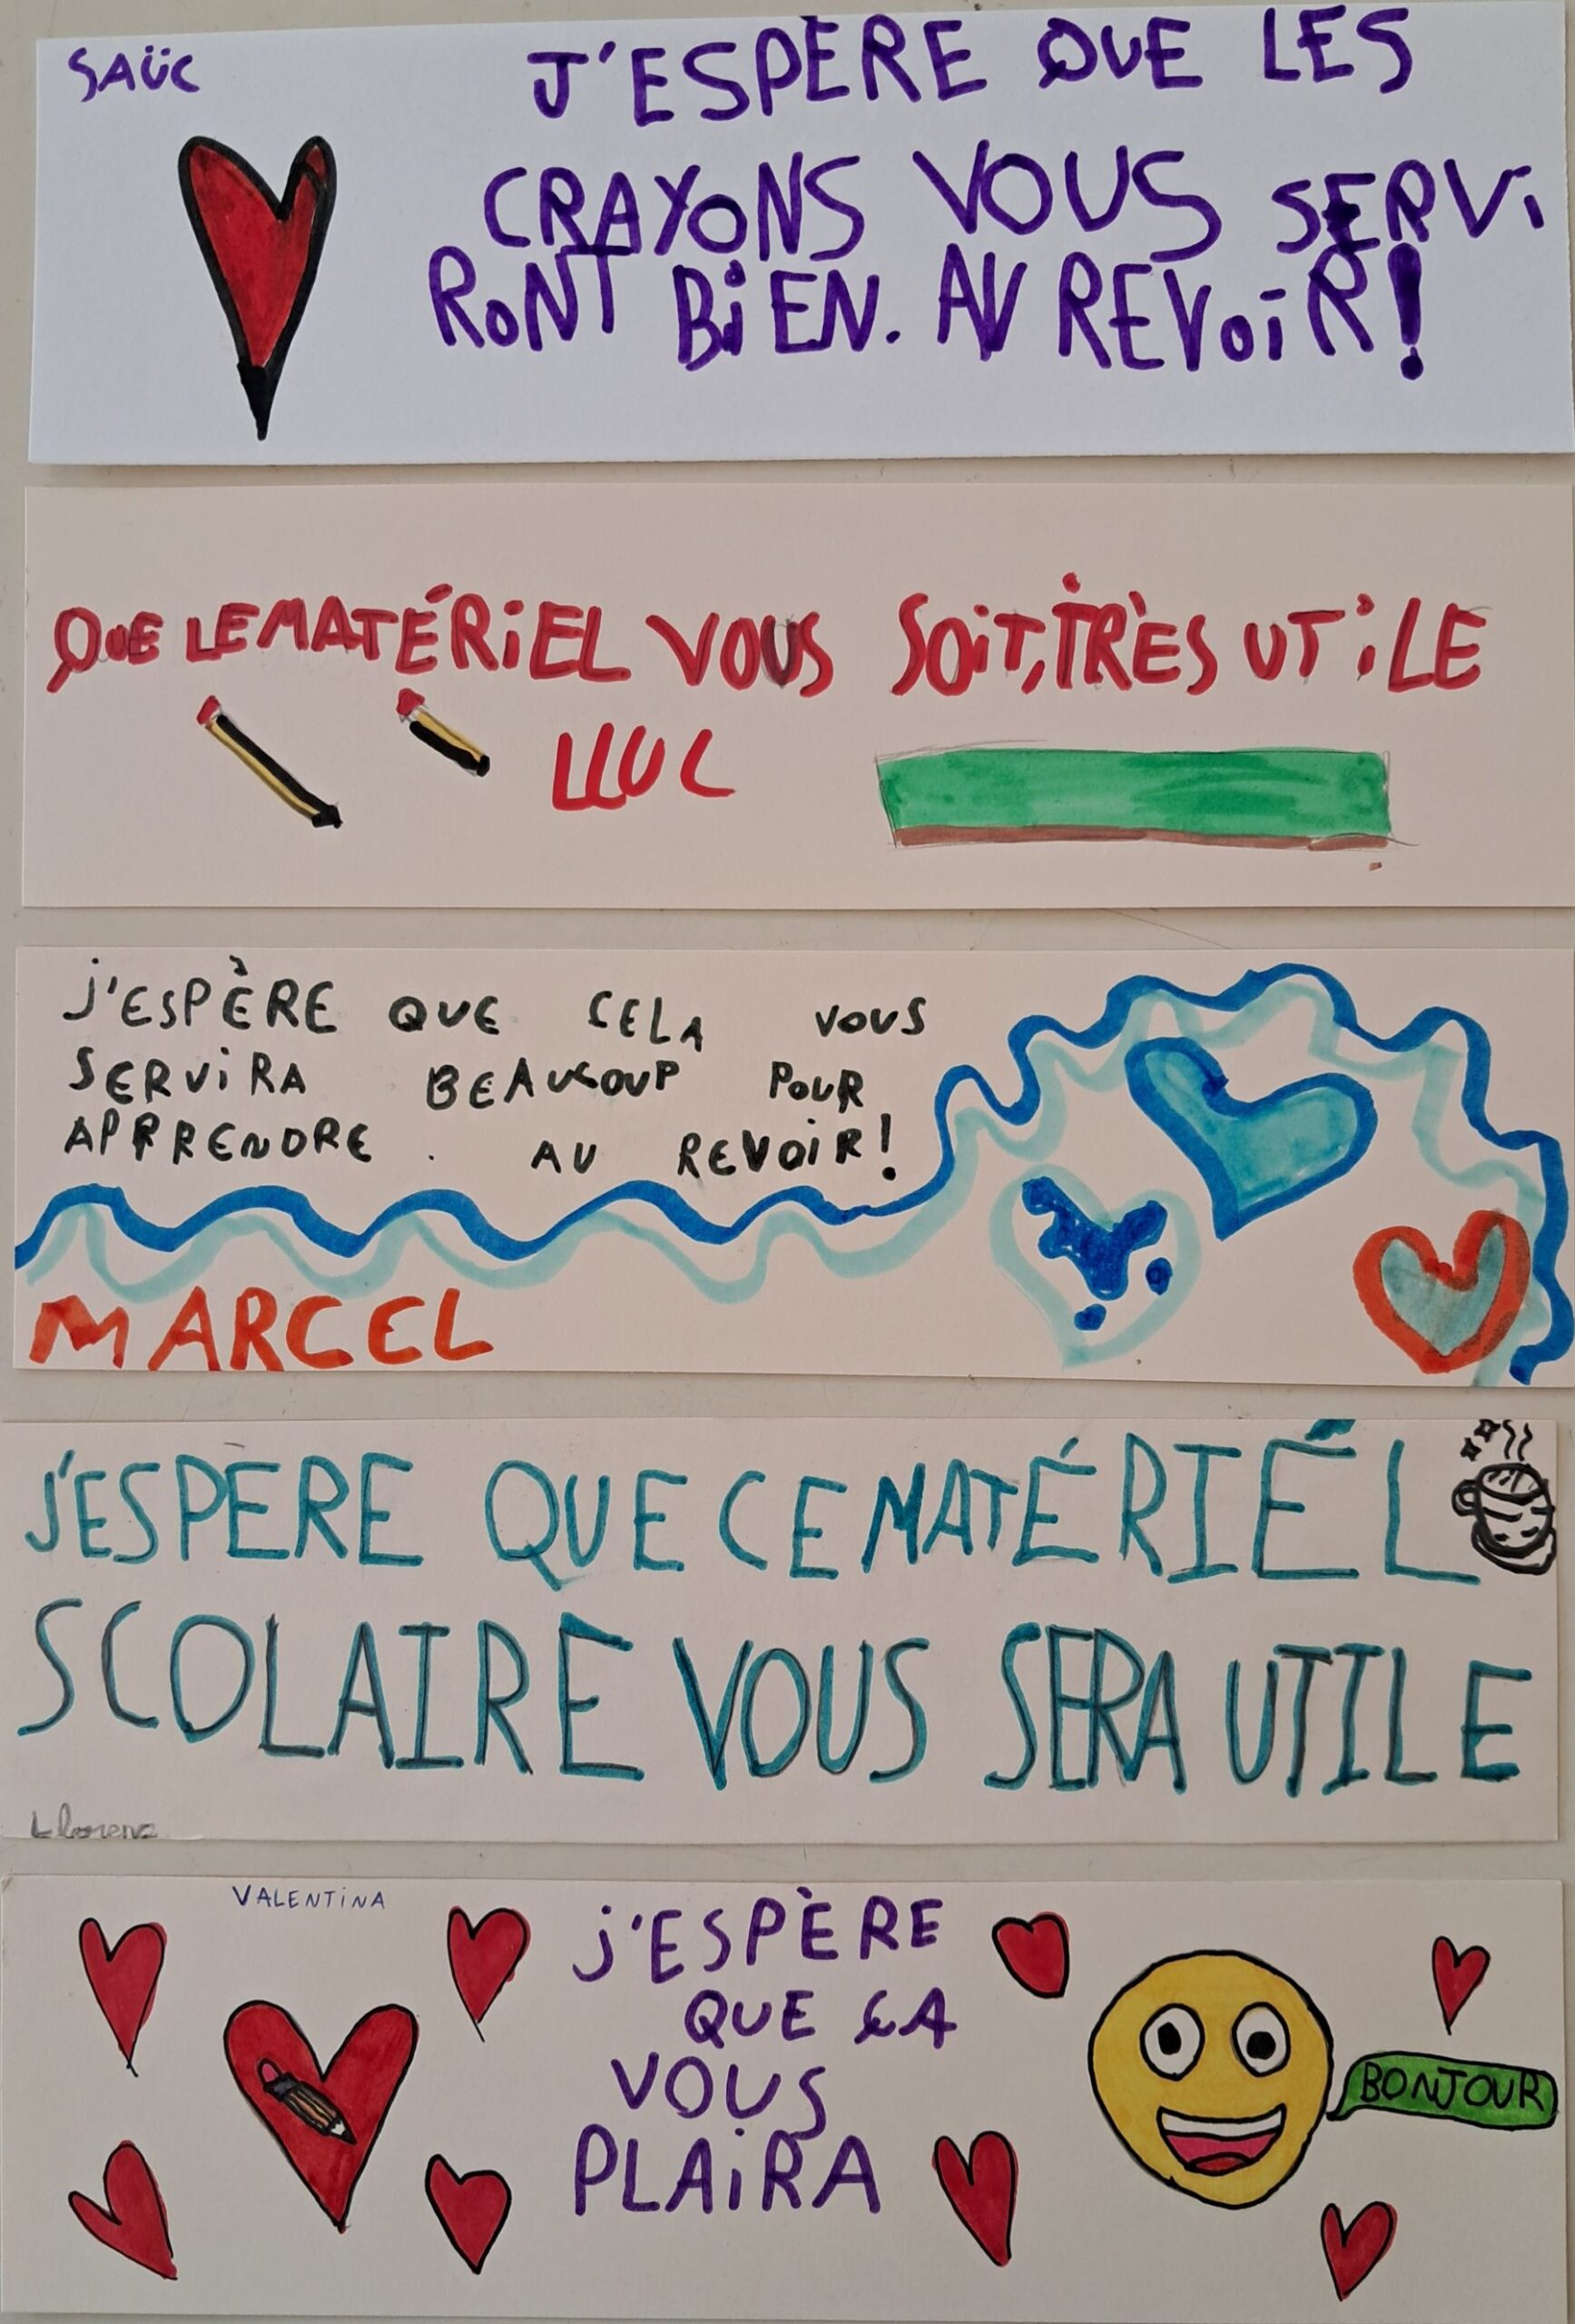 SAÜC
J'ESPÈRE QUE LES
CRAYONS VOUS SERVI
RONT BIEN. AU REVOIR!
QUE LE MATÉRIEL VOUS SOIT, TRÈS UTILE
LLUC
J'ESPÈRE QUE CELA VOUS
SERVIRA BEAUCOUP POUR
APPRENDRE. AU REVOIR!
MARCEL
J'ESPÈRE QUE CE MATÉRIÉL
SCOLAIRE VOUS SERA UTILE
Llorenç
VALENTINA
J'ESPÈRE
QUE ÇA
VOUS
PLAIRA
BONJOUR